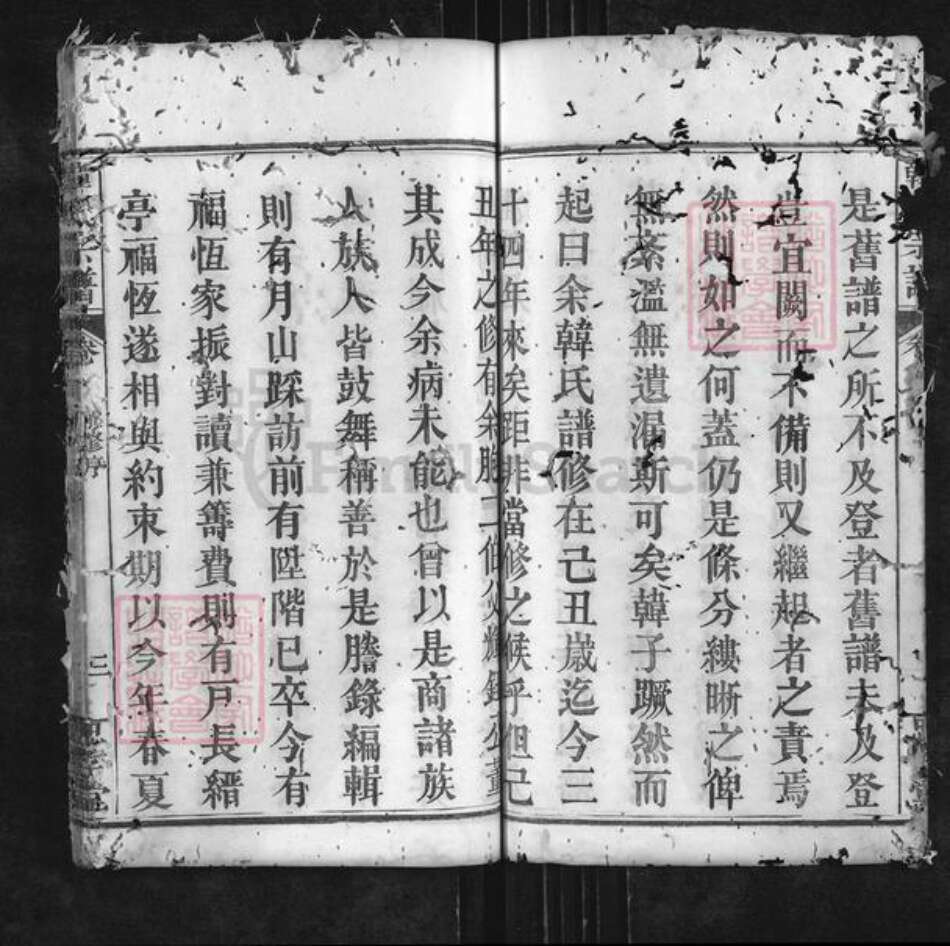 是舊譜之所不及登者舊譜未及登
豈宜闕而不備則又繼起者之責焉
然則如之何蓋仍是條分縷晰之俾
無紊濫無遺漏斯可矣韓子蹶然而
起曰余韓氏譜修在己丑歲迄今三
十四年來矣距非當修之候乎但己
丑年之修有余勝二修公輝錦公董
其成今余病未能也曾以是商諸族
人族人皆鼓舞稱善於是謄錄編輯
則有月山踩訪前有陞階已卒今有
福恆家振對讀兼籌費則有戸長縉
亭福恆遂相與約束期以今年春夏
氏宗譜
卷
修序
三
FamilySearch